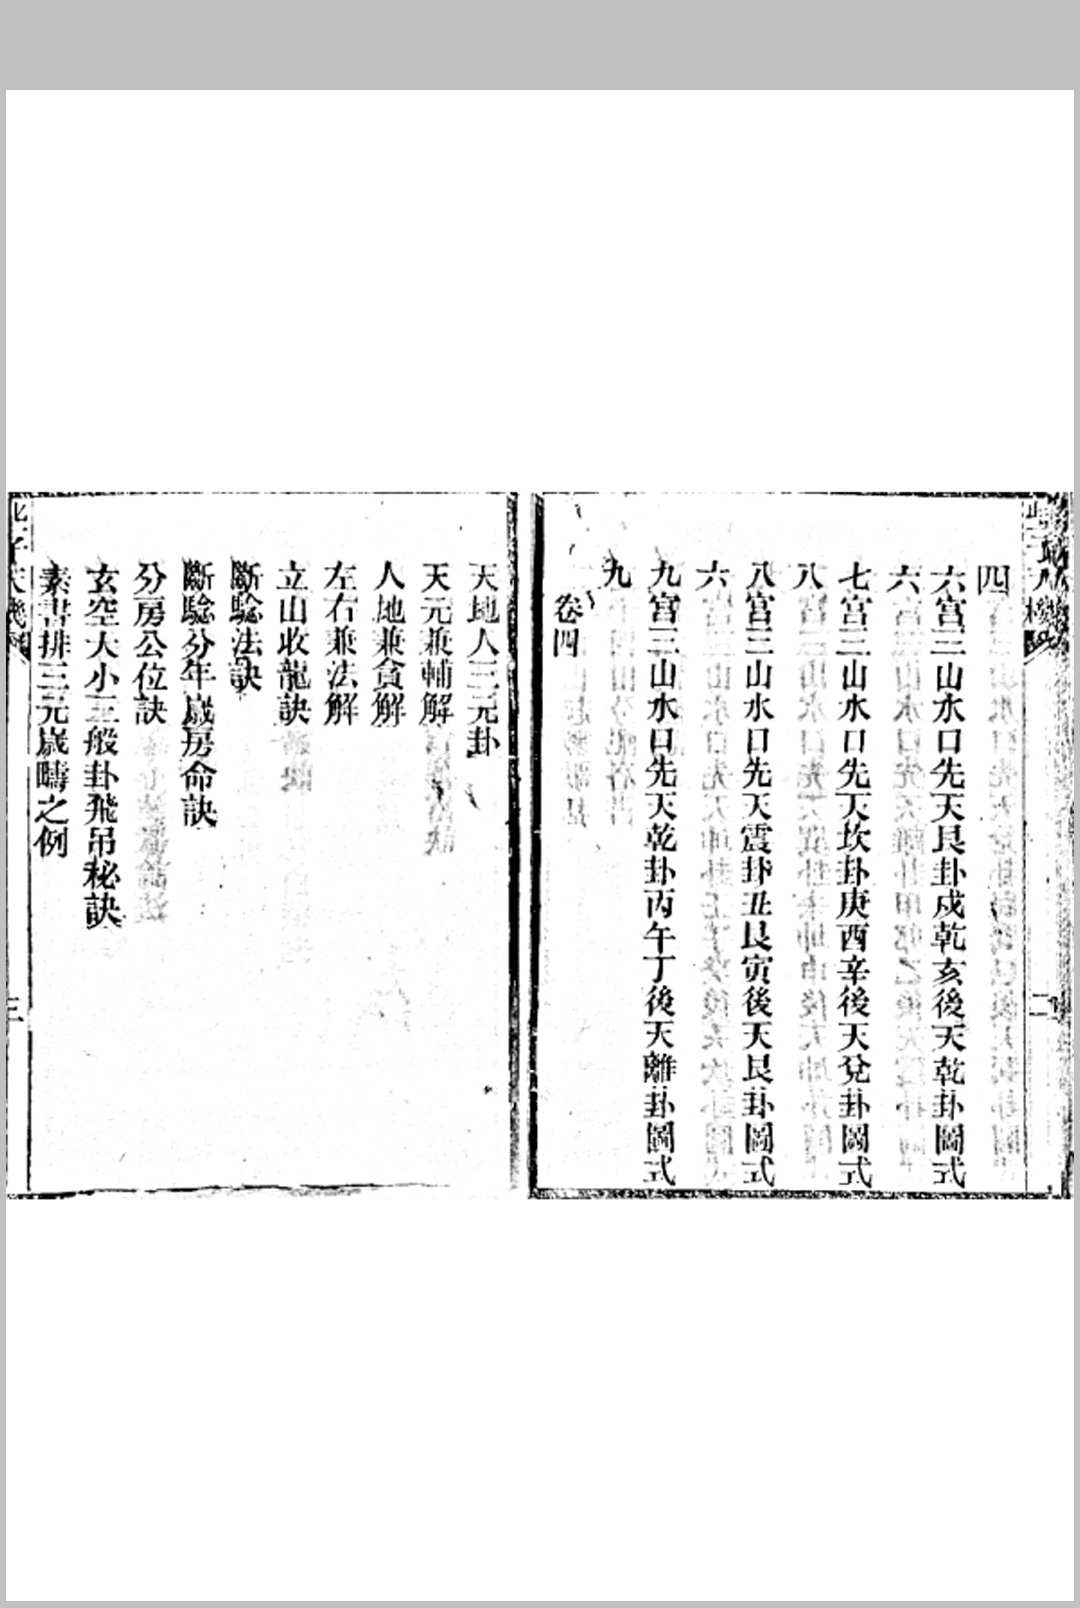 四
六宮三山水口先天艮卦戍乾亥後天乾卦圖式
六
七宮三山水口先天坎卦庚酉辛後天兌卦圖式
八
八宮三山水口先天震卦丑艮寅後天艮卦圖式
六
九宮三山水口先天乾卦丙午丁後天離卦圖式
九
卷四
二
天地人三元卦
天元兼輔解
人地兼貪解
左右兼法解
立山收龍訣
斷驗法訣
斷驗分年歲房命訣
分房公位訣
玄空大小三般卦飛吊秘訣
素書排三元歲疇之例
三